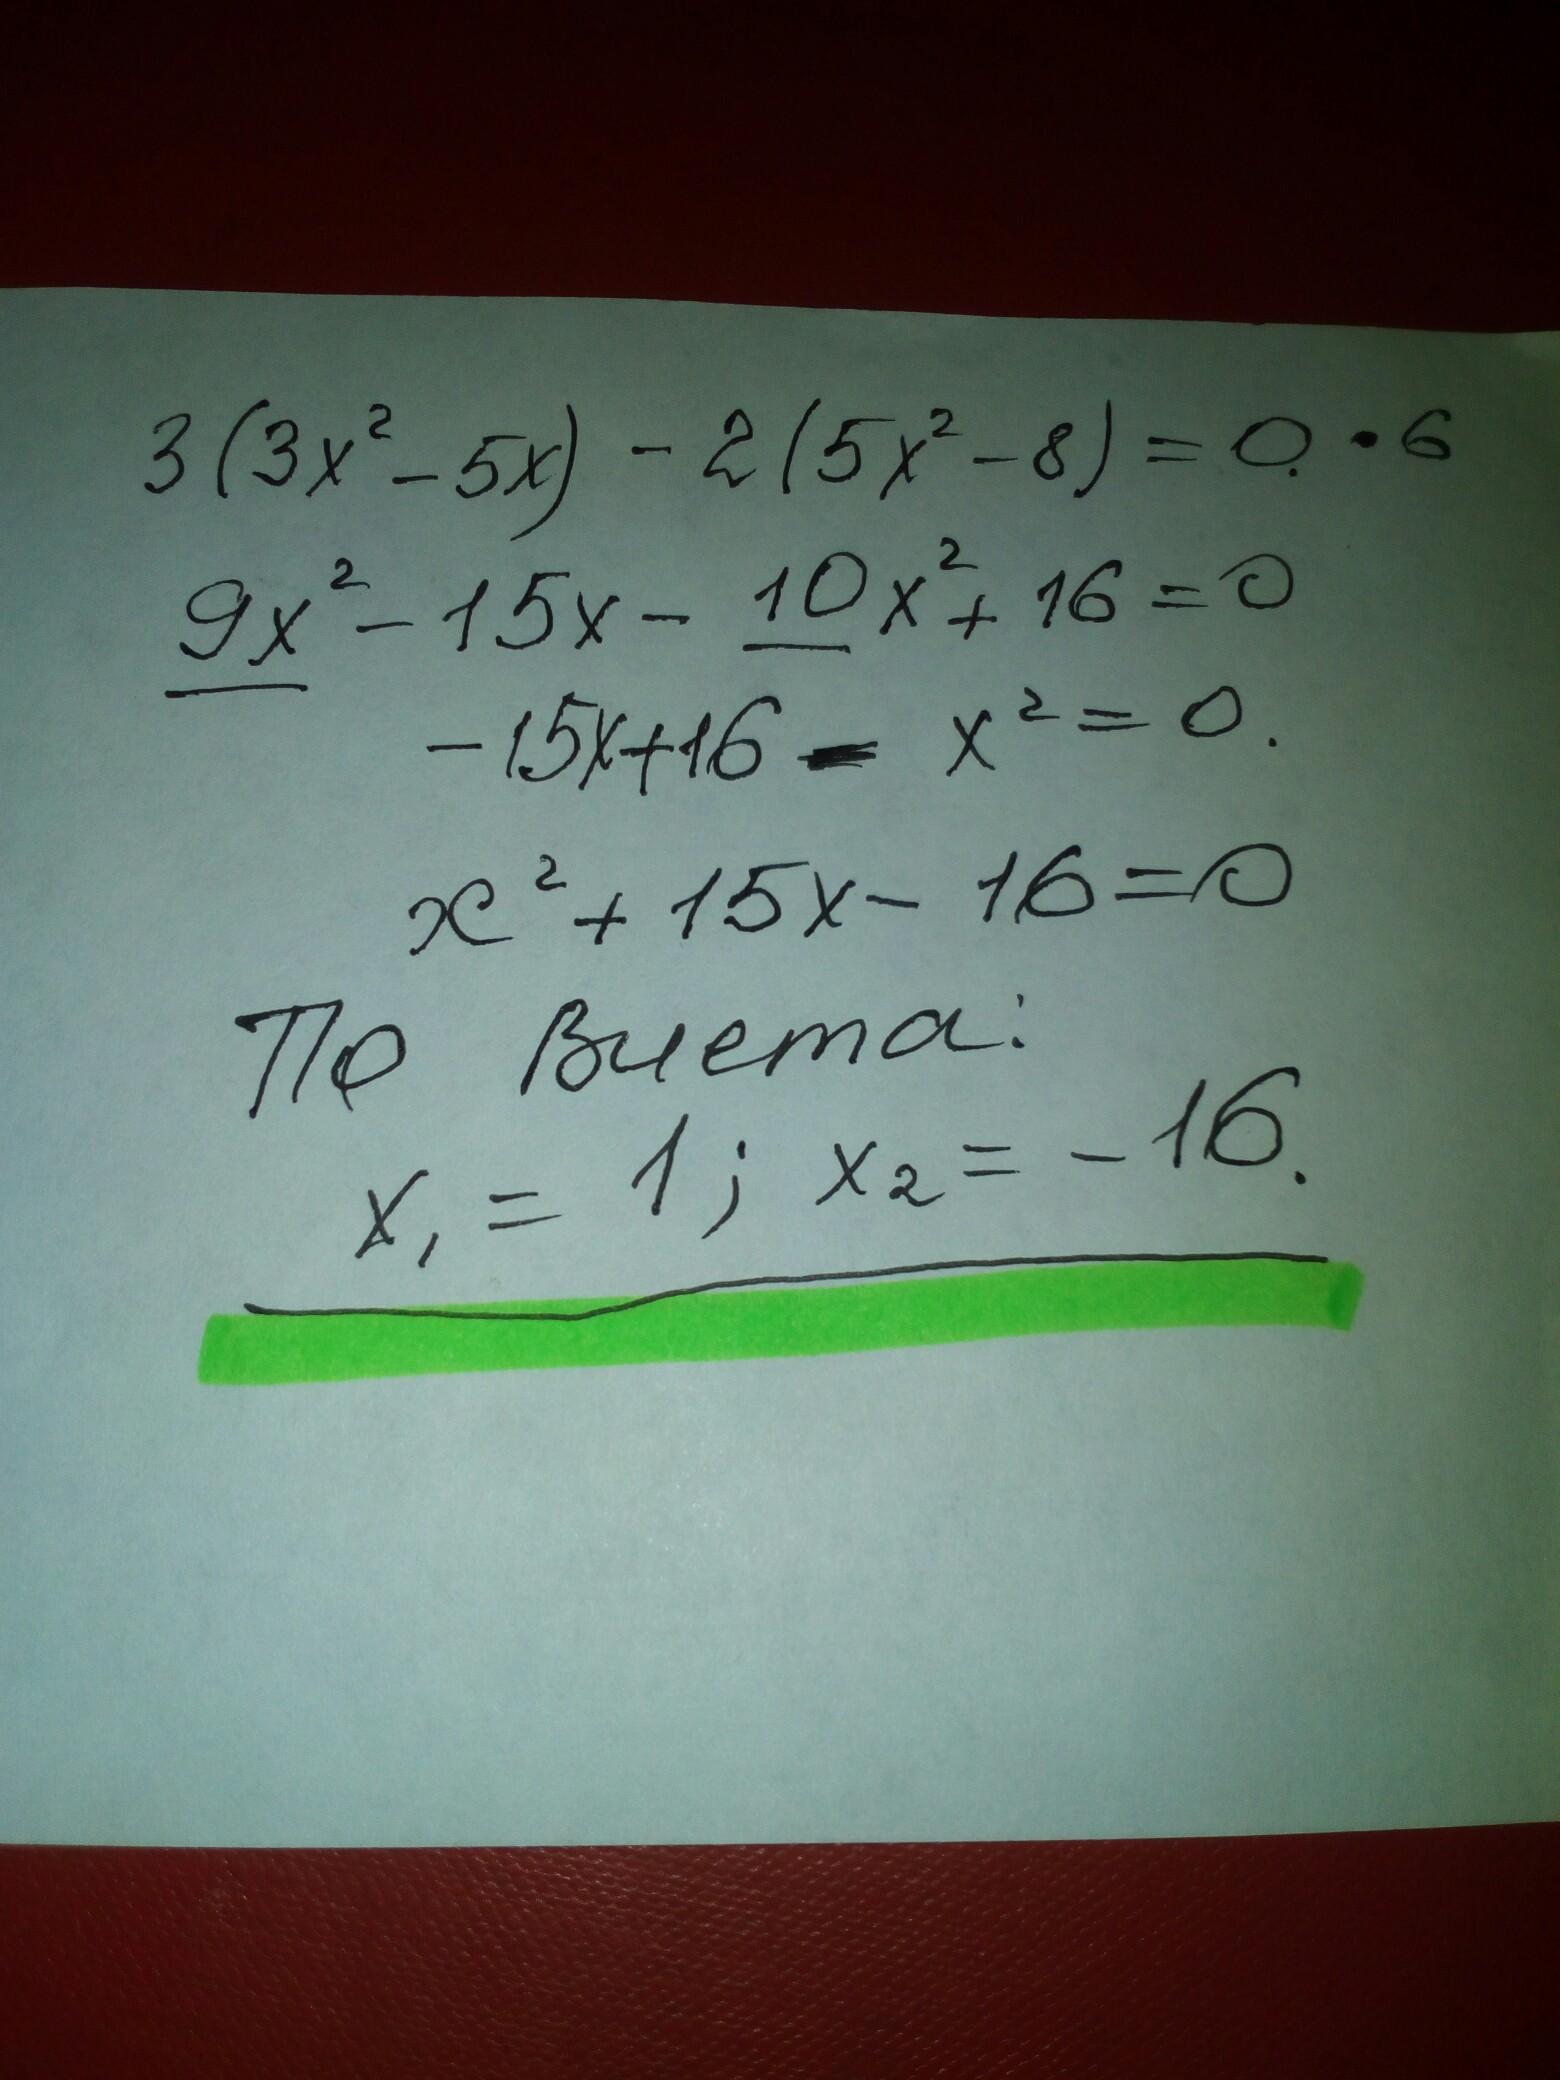 3(3x²-5x) - 2(5x²-8) = 0. · 6
9x² - 15x - 10x² + 16 = 0
-15x+16 - x² = 0.
x² + 15x - 16 = 0
По Виета:
x₁ = 1; x₂ = -16.